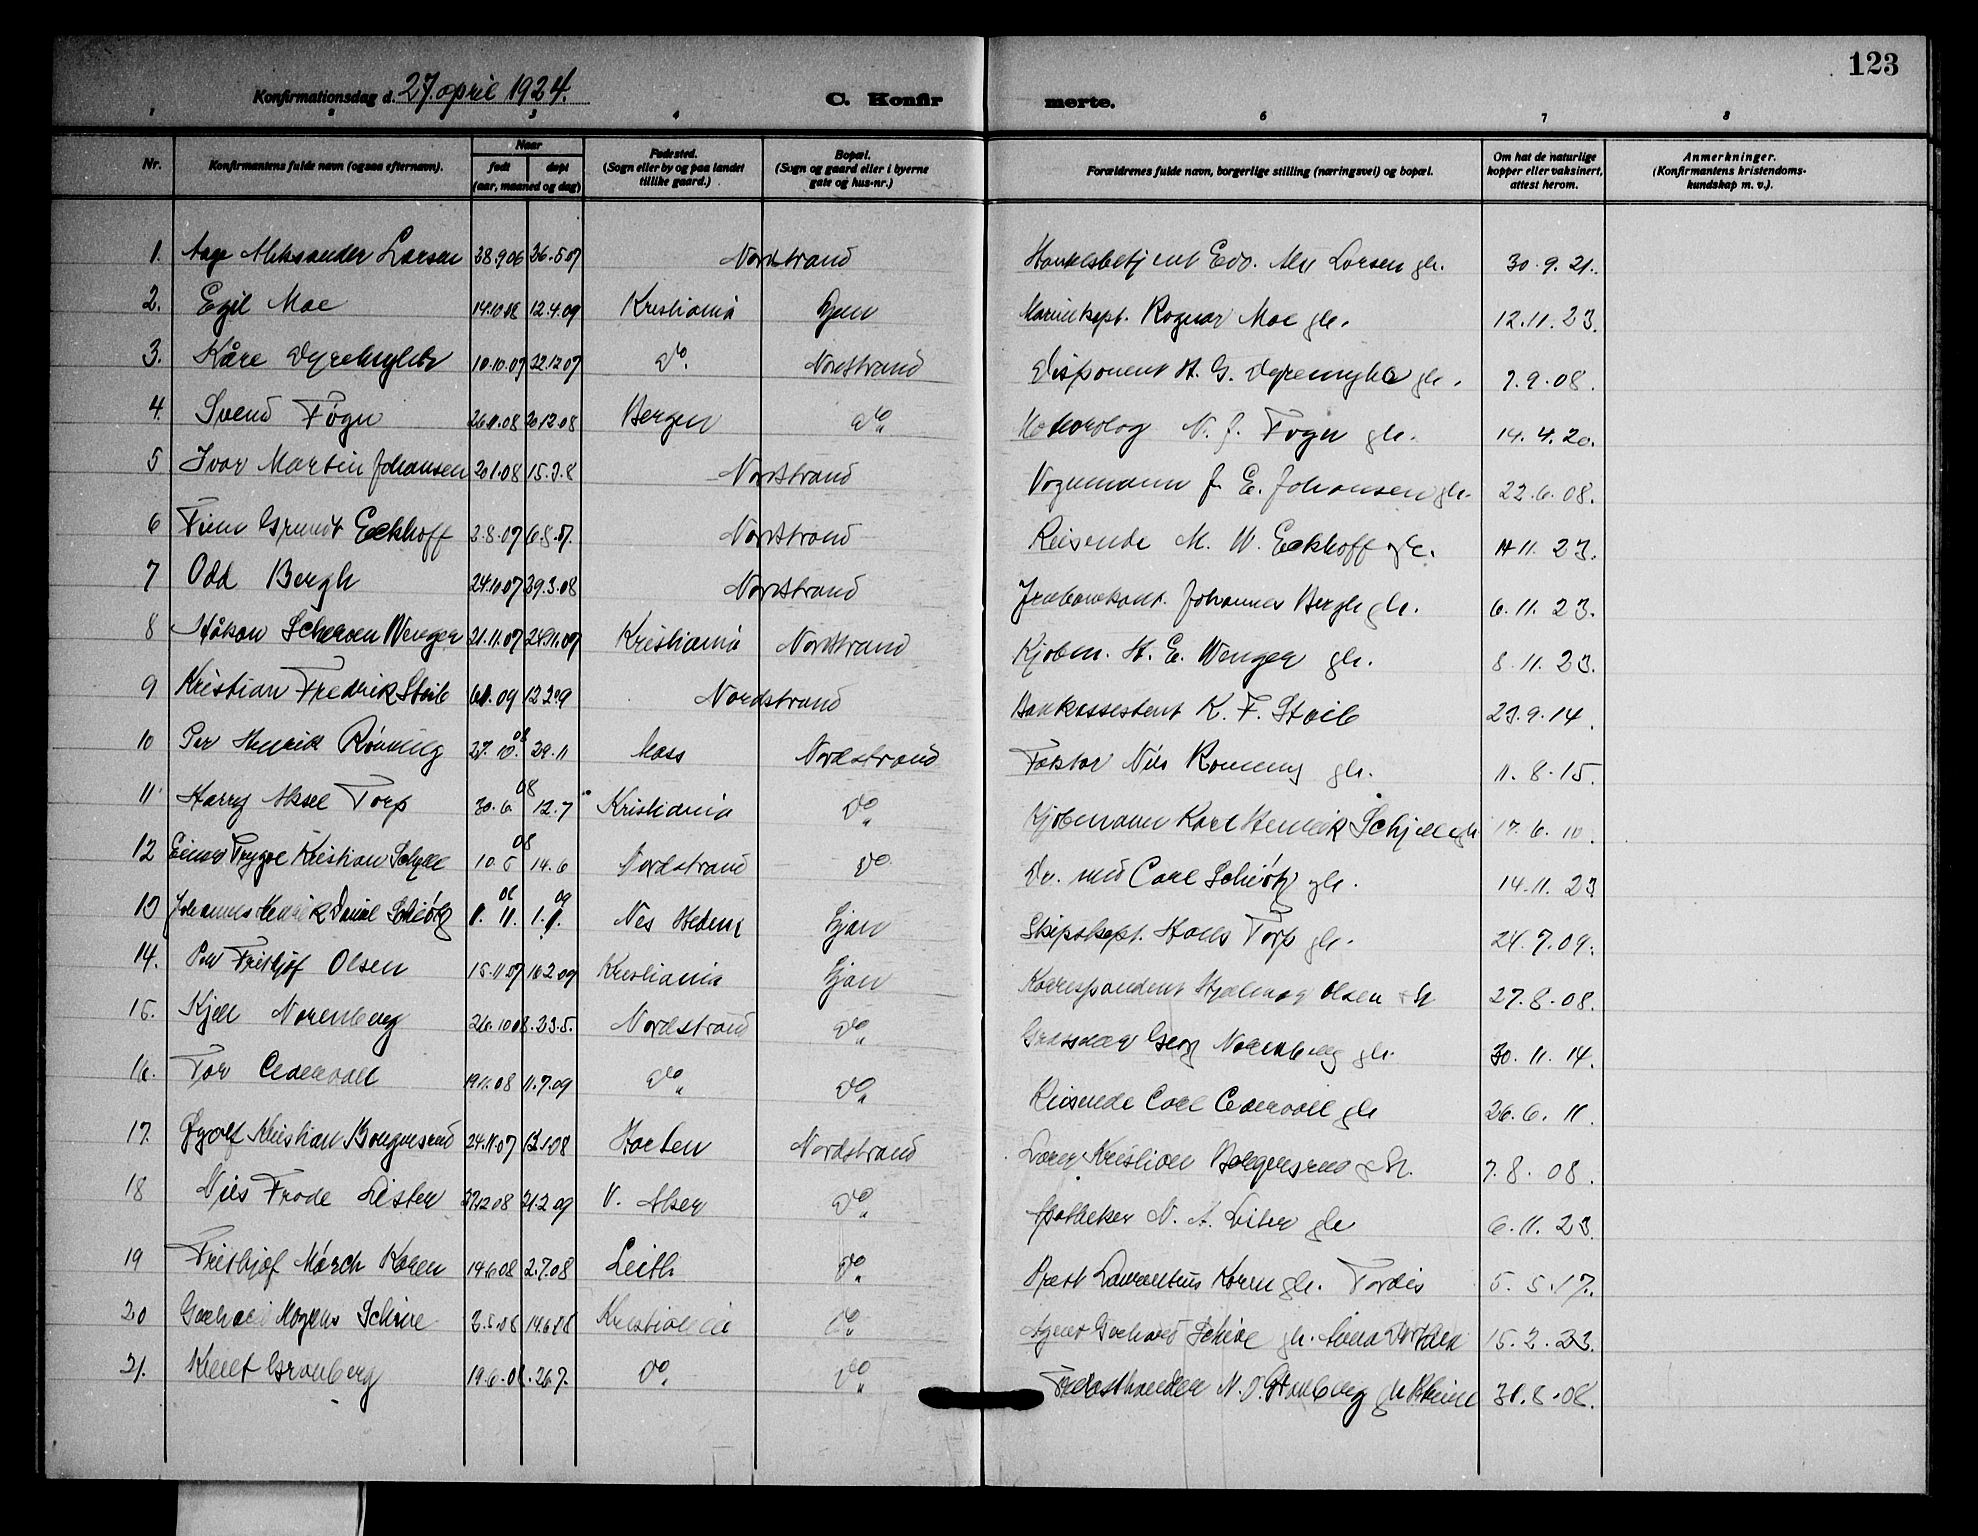 123
Konfirmationsdag d. 27. april 1924.
C. Konfirmerte.
1 2 3 4 6 7 8
Nr.
Konfirmantens fulde navn (ogsaa efternavn).
Naar
født
døpt
(aar, maaned og dag)
Fødested.
(Sogn eller by og paa landet
tillike gaard.)
Bopæl.
(Sogn og gaard eller i byerne
gate og hus-nr.)
Forældrenes fulde navn, borgerlige stilling (næringsvei) og bopæl.
Om hat de naturlige
kopper eller vaksinert,
attest herom.
Anmerkninger.
(Konfirmantens kristendoms-
kundskap m. v.).
1. Aage Aleksander Larsen 28.9.06 26.5.07 Nordstrand Handelsbetjent Edv. Alex Larsen gh. 30.9.21.
2. Egil Moe 14.10.08 12.4.09 Kristiania Ljan Marinkapt. Ragnar Moe gh. 12.11.23.
3. Kåre Dyremyhr 10.10.07 22.12.07 do. Nordstrand Disponent H. G. gh. 7.9.08.
4. Svend Føyn 26.11.08 20.12.08 Bergen do Meteorolog N. J. Føyn gh. 14.4.20.
5 Ivar Martin Johansen 20.1.08 15.3.8 Nordstrand Vognmann J. E. Johansen gh. 22.6.08.
6 Finn Grundt Eckhoff 2.8.07 Nordstrand Reisende M. W. Eckhoff gh. 14.11.23.
7 Odd Bergh 24.10.07 29.3.08 Nordstrand Johannes Bergh gh. 6.11.23.
8 Håkon Wenger 21.11.07 Kristiania Nordstrand Kjøbm. H. E. Wenger gh. 8.11.23.
9 Kristian Fredrik Staib 09 12.2.09 Nordstrand Bankassistent K. F. Staib 23.9.14.
10 Per Henrik Rønning 27.10.08 29.11 Moss Nordstrand Faktor Nils Rønning gh. 11.8.15.
11 Harry Aksel Torp 30.6 08 12.7 Kristiania do Kjøbmann Karl Henrik Schjell gh 17.6.10.
12 Einar Trygve Kristian Schjell 10.5 08 14.6 Nordstrand do Dr. med Carl Schiøtz gh. 14.11.23
13 Johannes Henrik Daniel Schiøtz 11. 1. 09 Nes Hedm Ljan Skipskapt. Hans Torp gh. 24.7.09.
14. Per Fritjof Olsen 15.11.07 16.2.09 Kristiania Ljan Korrespondent Hjalmar Olsen gh 27.8.08.
15. Kjell Norenberg 26.10.08. 23.5. Nordstrand do Grosserer Georg Norenberg gh. 30.11.14.
16. Tor Cedervall 19.11.08 11.7.09 do do Reisende Carl Cedervall gh 26.6.11.
17. Kristian Borgersrud 24.11.07 Horten Nordstrand Lærer Kristian Borgersrud gh. 7.8.08.
18 Nils Frode Lister 27.12.08 21.2.09 V. Aker do Apotheker N. A. gh 6.11.23.
19 Frithjof Mørch Koren 14.6.08 2.7.08 Leith do Prest Laurentius Koren gh. Tordis 5.5.17.
20 Gerhard Mogens Schive 3.5.08 14.6.08 Kristiania do Agent Gerhard Schive gh. 15.2.23.
21. Grønberg 19.6.08. 26.7. do do gh 31.8.08.